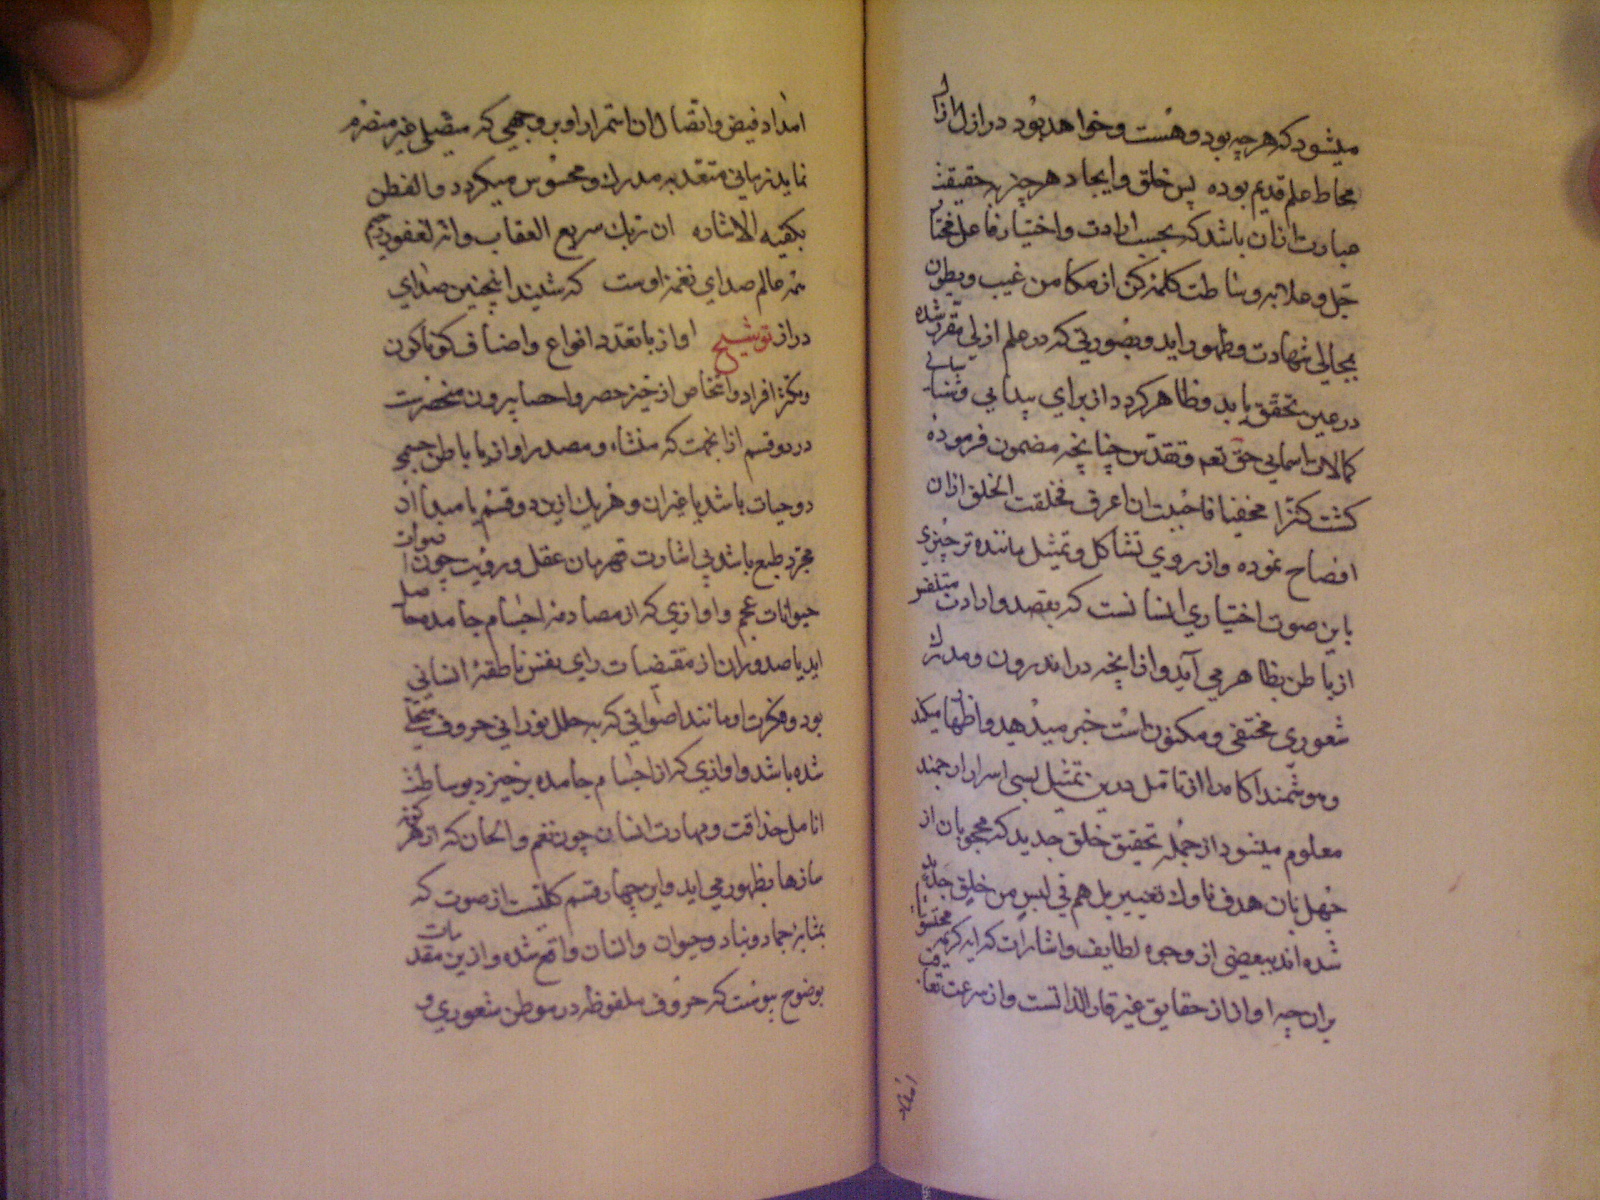 میشود که هرچه بود و هست و خواهد بود در ازل ازال
محاط علم قدیم بوده پس خلق و ایجاد هر چیز بحقیقت
عبارت ازان باشد که بحسب ارادت و اختیار فاعل مختار
جل و علا بوساطت کلمه کن از مکامن غیب و بطون
بمجالی شهادت و ظهور اید و بصورتی که در علم ازلی مقرر شده
در عین تحقق یابد و ظاهر کردد از برای پیدایی و شناسایی
کمالات اسمایی حق تعم و تقدس چنانچه مضمون فرموده
کنت کنزا مخفیا فاحببت ان اعرف فخلقت الخلق ازان
افصاح نموده و از روی تشاکل و تمثیل ماننده تر چیزی
باین صوت اختیاری انسانست که بقصد و ارادت متلفظ
از باطن بظاهر می آید و ازانچه در اندرون و مدرک
شعوری مختفی و مکنون است خبر میدهد و اظهار میکند
و هوشمند اکاه را از تامل درین تمثیل بسی اسرار ارجمند
معلوم میشود از جمله تحقیق خلق جدید که محجوبان از
جهل بان هدف ناوک تعییر بل هم فی لبس من خلق جدید
شده اند ببعضی از وجوه لطایف و اشارات که ایه کریمه محتوی
بران چه اواز از حقایق غیر قار الذاتست و از سرعت تعاقب
امداد
امداد فیض و اتصال ان استمرار او بر وجهی که متصلی غیر منصرم
نماید زمانی متعد به مدرک و محسوس میکردد و الفطن
یکفیه الاشاره ان ربک سریع العقاب وانه لغفور رحیم
همه عالم صدای نغمه اوست که شنید اینچنین صدای
دراز توشیح اواز با تعدد انواع و اصناف کوناکون
و کثرة افراد و اشخاص از حیز حصر و احصا بیرون منحصرست
در دو قسم ازانجهت که منشاء و مصدر اواز یا باطن جسمی
ذو حیات باشد یا غیر ان و هر یک ازین دو قسم یا مبدا ان
مجرد طبع باشد بی اشارت قهرمان عقل و رویت چون اصوات
حیوانات عجم و اوازی که از مصادمه اجسام جامده حاصل
اید یا صدور ان از مقتضیات رای نفس ناطقه انسانی
بود و فکرت او مانند اصواتی که به حلل نورانی حروف متحلی
شده باشد و اوازی که از اجسام جامده برخیزد بوساطت
انامل حذاقت و مهارت انسان چون نغم و الحان که از هر کونه
سازها بظهور می اید و این چهار قسم کلیست از صوت که
بمثابه جماد و نبات و حیوان و انسان واقع شده و ازین مقدمات
بوضوح پیوست که حروف ملفوظه در موطن شعوری و